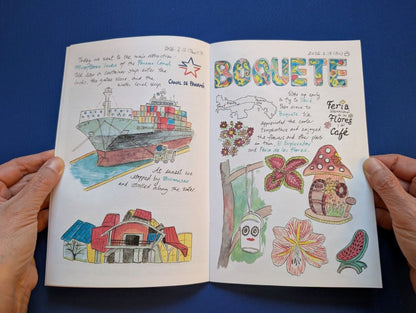 Today we went to the main attraction
Miraflores Locks of the Panama Canal.
We saw a container ship enter the
locks, the gates close and the
water level drop.
CANAL DE PANAMÁ
At sunset we
stopped by Biomuseo
and strolled along the water
BOQUETE
Woke up early
to fly to David
then drove to
Boquete. We
appreciated the cooler
temperatures and enjoyed
the flowers and other places
in town, El Explorador
and Feria de las Flores.
Feria
Flores
Café